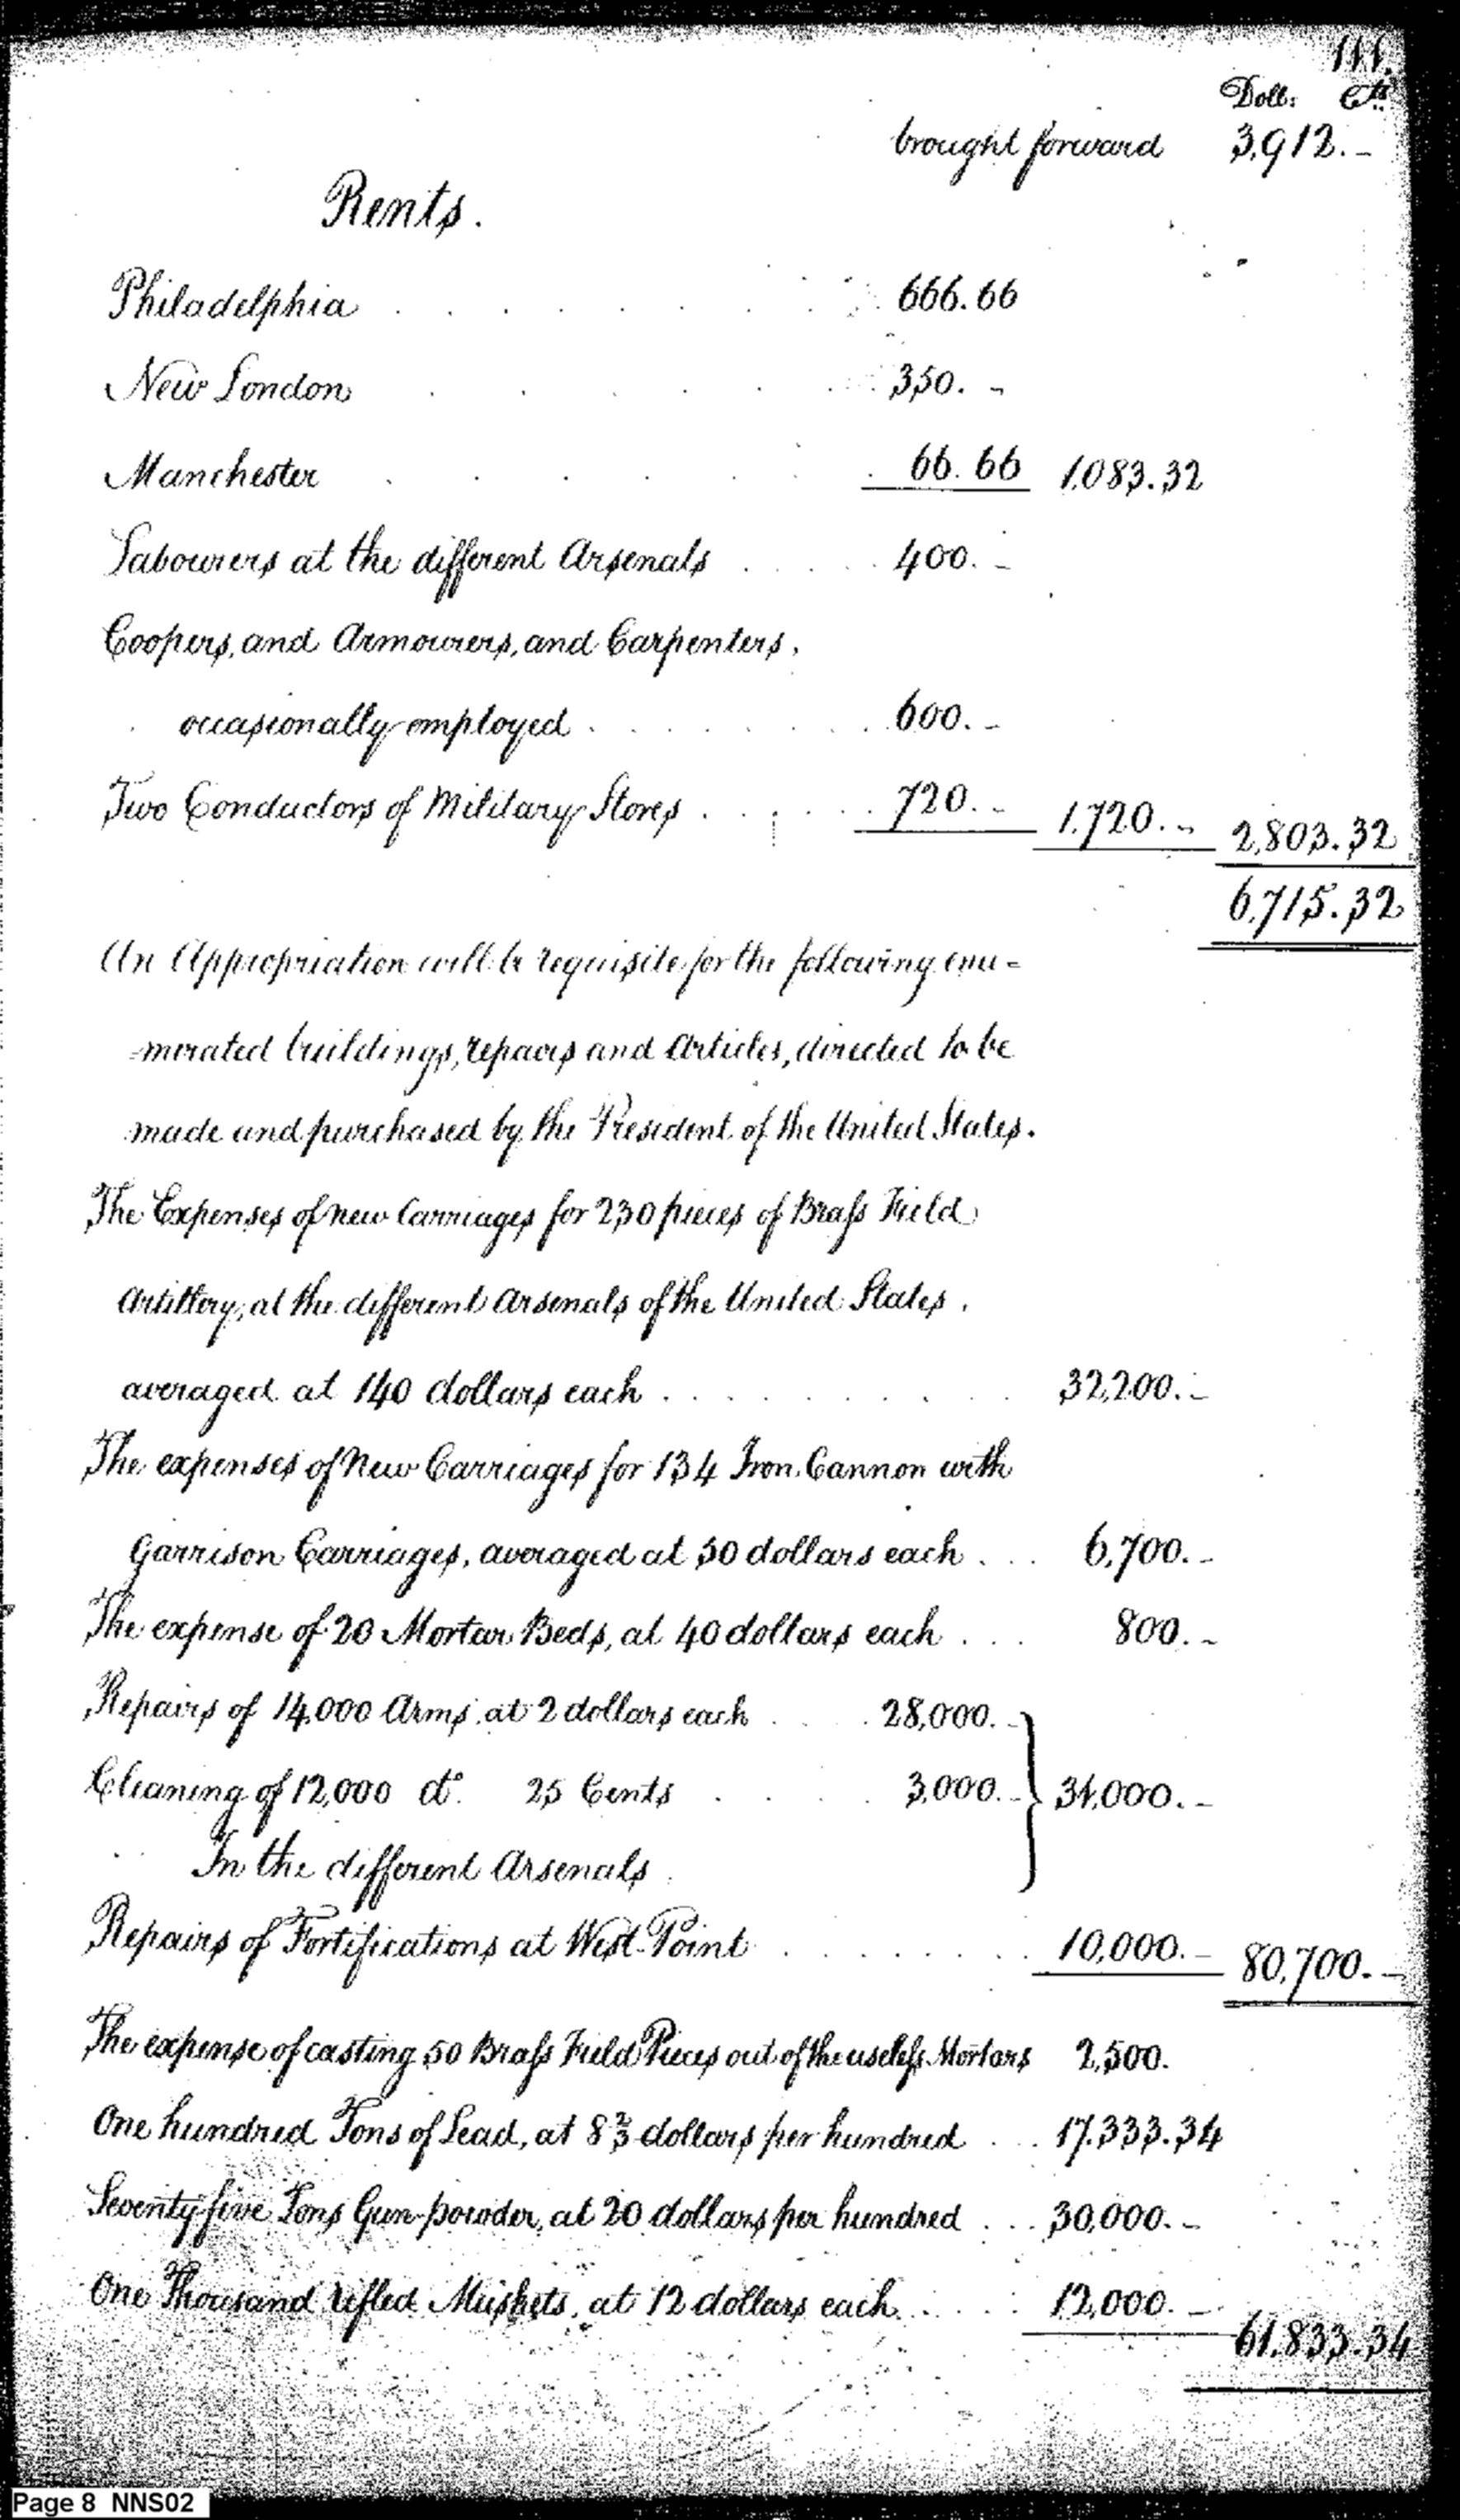 111.
Doll: Cts
brought forward 3,912.-
Rents.
Philadelphia . . . . . . . . 666.66
New London . . . . . . 350. -
Manchester . . . . . . 66.66 1,083.32
Labourers at the different Arsenals . . . . . 400. -
Coopers, and Armourers, and Carpenters,
occasionally employed . . . . . . . 600. -
Two Conductors of Military Stores . . . . . . 720. - 1,720. - 2,803.32
6,715.32
An Appropriation will be requisite for the following enu=
=merated buildings, repairs and Articles, directed to be
made and purchased by the President of the United States.
The Expenses of new Carriages for 230 pieces of Brass Field
Artillery, at the different Arsenals of the United States,
averaged at 140 dollars each . . . . . . . . 32,200. -
The expenses of New Carriages for 134 Iron Cannon with
Garrison Carriages, averaged at 50 dollars each . . . 6,700. -
The expense of 20 Mortar Beds, at 40 dollars each . . . 800. -
Repairs of 14,000 Arms, at 2 dollars each . . . 28,000. -
Cleaning of 12,000 do. 25 Cents . . . . 3,000. - } 31,000. -
In the different Arsenals
Repairs of Fortifications at West-Point . . . . . . . 10,000. - 80,700. -
The expense of casting 50 Brass Field Pieces out of the useless Mortars 2,500.
One hundred Tons of Lead, at 8 2/3 dollars per hundred . . . 17.333.34
Seventy five Tons Gun-powder, at 20 dollars per hundred . . . 30,000. -
One Thousand rifled Muskets, at 12 dollars each . . . . . 12,000. -
61.833.34
Page 8 NNS02